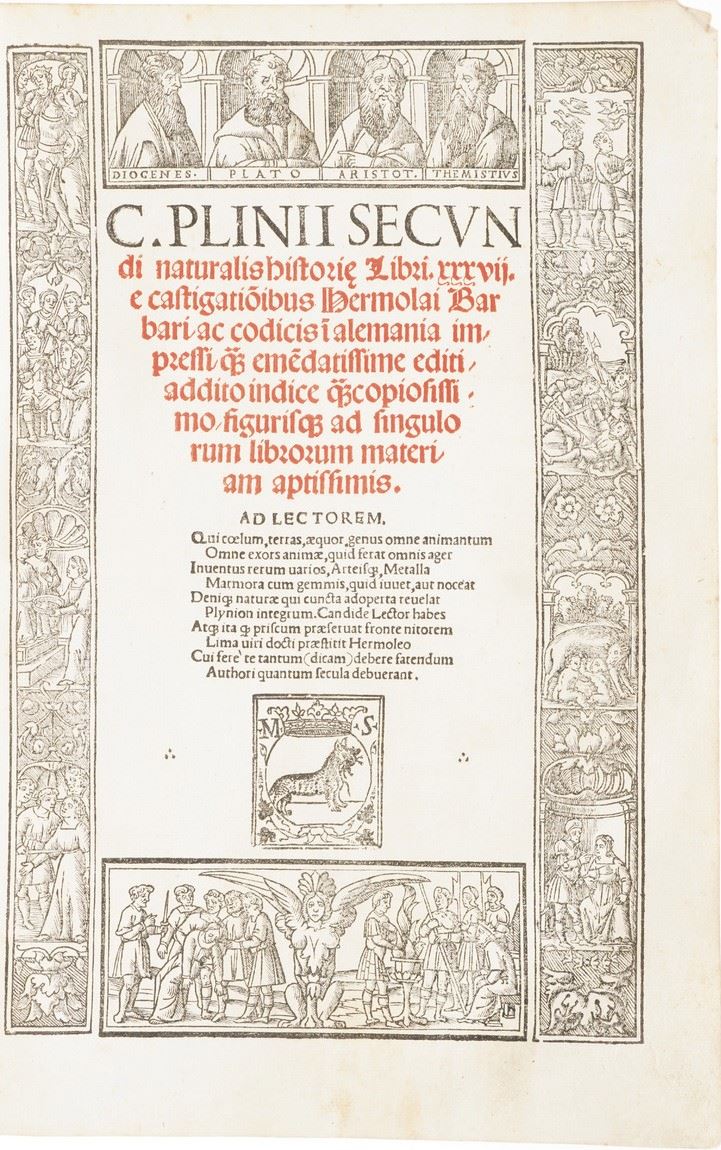 DIOGENES. PLATO ARISTOT. THEMISTIVS
C. PLINII SECVN
di naturalis historię Libri. xxxvij.
e castigatiõibus Hermolai Bar
bari/ac codicis ĩ alemania im/
pressi/q̃ꝫ emẽdatissime editi/
addito indice q̃ꝫcopiosissi/
mo/figurisqꝫ ad singulo
rum librorum materi/
am aptissimis.
AD LECTOREM.
Qui cœlum, terras, æquor, genus omne animantum
Omne exors animæ, quid ferat omnis ager
Inuentus rerum uarios, Arteisqꝫ, Metalla
Marmora cum gemmis, quid iuuet, aut noceat
Deniqꝫ naturæ qui cuncta adoperta reuelat
Plynion integrum. Candide Lector habes
Atqꝫ ita qꝫ priscum præseruat fronte nitorem
Lima uiri docti præstitit Hermoleo
Cui fere' te tantum (dicam) debere fatendum
Authori quantum secula debuerant.
M S